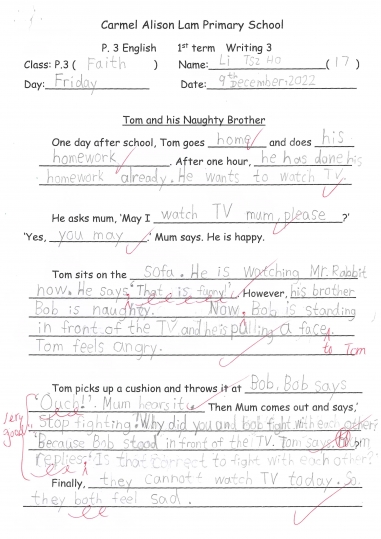 Carmel Alison Lam Primary School
P. 3 English 1st term Writing 3
Class: P.3 ( Faith ) Name: Li Tsz Ho ( 17 )
Day: Friday Date: 9th December 2022
Tom and his Naughty Brother
One day after school, Tom goes home and does his
homework. After one hour, he has done his
homework already. He wants to watch TV.
He asks mum, 'May I watch TV mum, please ?'
'Yes, you may.' Mum says. He is happy.
Tom sits on the sofa. He is watching Mr. Rabbit
now. He says 'That is funy!'. However, his brother
Bob is naughty. Now, Bob is standing
in front of the TV and he is pulling a face
to Tom
Tom feels angry.
Tom picks up a cushion and throws it at Bob. Bob says
'Ouch!'. Mum hears it. Then Mum comes out and says,'
Very good
Stop fighting! Why did you and bob fight with each other?'
'Because Bob stood in front of the TV.' Tom says.
replies. 'Is that correct to fight with each other?'
Finally, they cannot watch TV today. So,
they both feel sad.